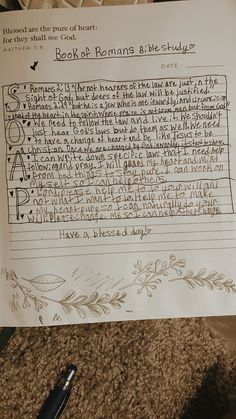 Blessed are the pure of heart:
for they shall see God.
MATTHEW 5:8
Book of Romans Bible study
DATE:
S Romans 2:13 "for not hearers of the law are just in the
sight of God, but doers of the law will be justified."
Romans 2:29 "but he is a Jew who is one inwardly; and circumcision is
that of the heart, in the spirit whose praise is not from men but from God"
O We need to follow the law and live it. We shouldn't
just hear God's laws but do them as well. We need
to have a change of heart and be like Jesus to be
Christian. Once we are changed by God inwardly, it's
A I can write down specific laws that I need help
following and pray. I will guard my heart and mind
from bad things to stay pure. I can work on
myself so I can help others.
P Lord please help me to do your will and
not what I want to do. Help me to make
my heart pure so I can naturally do your
will. Please change me so I can help
Have a blessed day!